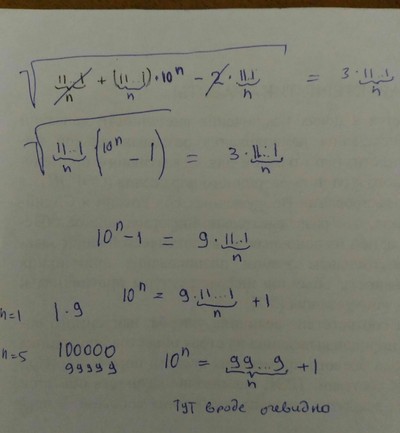 √(11...1 (n) + (11...1) (n) · 10ⁿ − 2 · 11...1 (n)) = 3 · 11...1 (n)
√(11...1 (n) (10ⁿ − 1)) = 3 · 11...1 (n)
10ⁿ − 1 = 9 · 11...1 (n)
n=1 1·9 10ⁿ = 9 · 11...1 (n) + 1
n=5 100000
99999 10ⁿ = 99...9 (n) + 1
Тут вроде очевидно